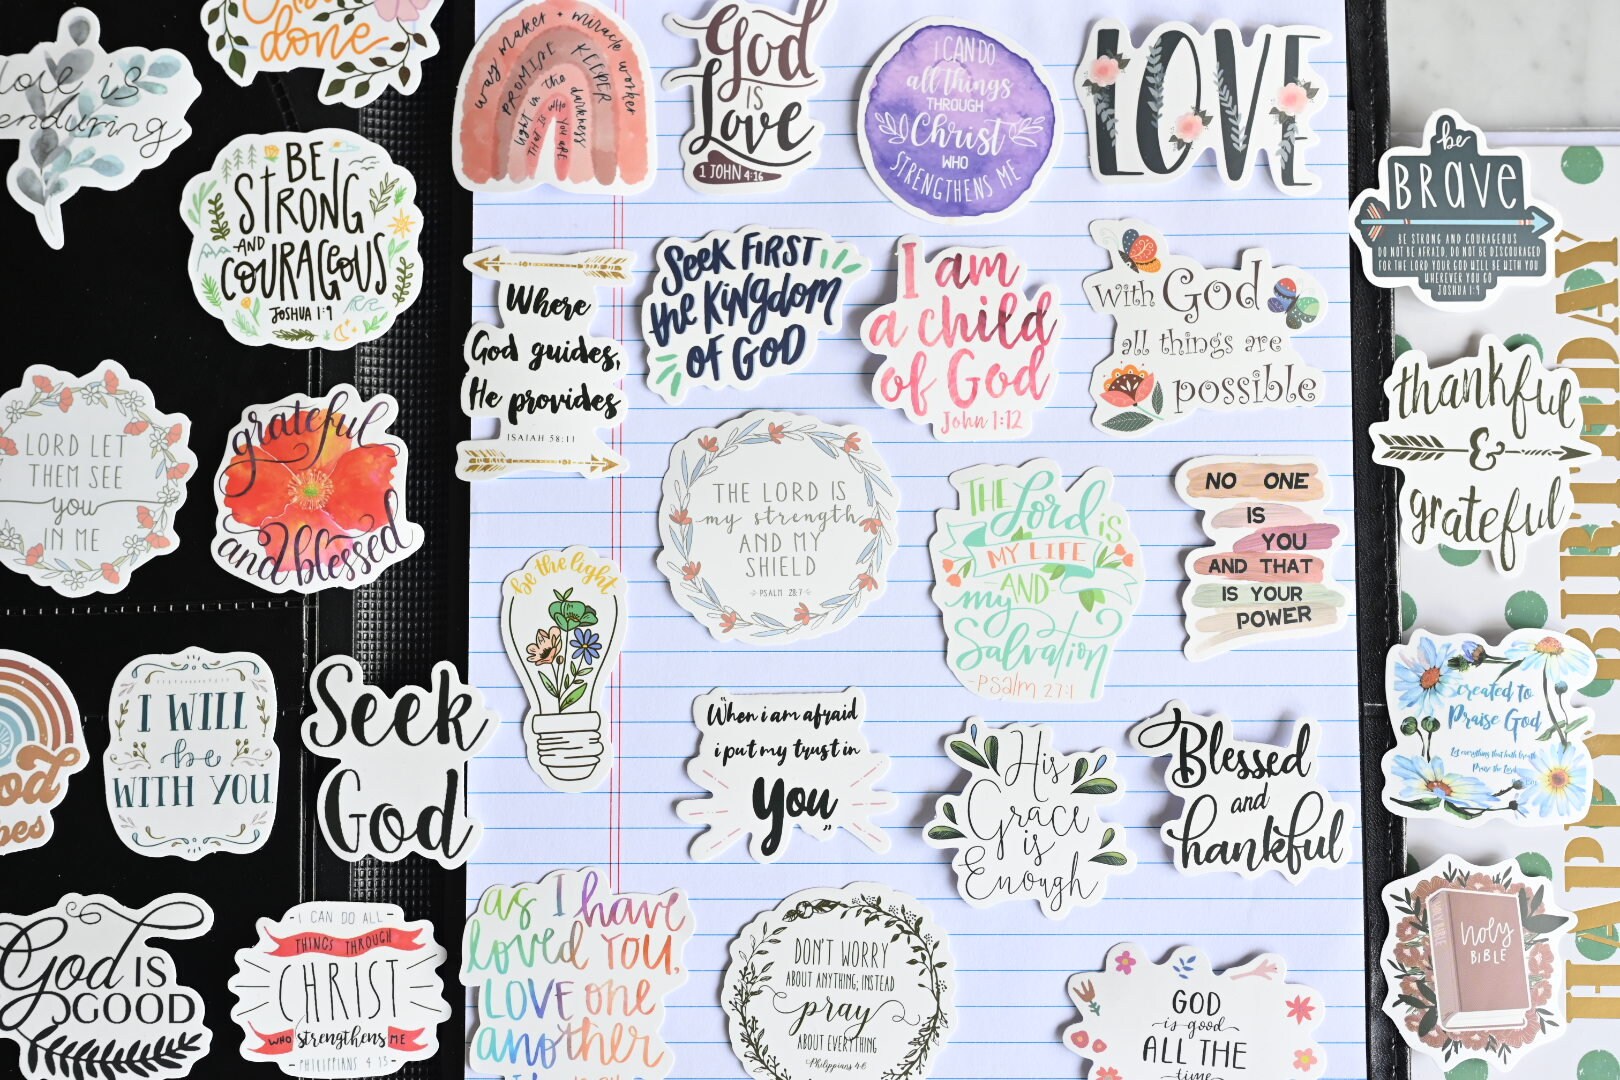 done
love is
enduring
BE
STRONG
AND
COURAGEOUS
JOSHUA 1:9
LORD LET
THEM SEE
you
IN ME
grateful
and blessed
I WILL
be
WITH YOU
Seek
God
God IS
GOOD
I CAN DO ALL
THINGS THROUGH
CHRIST
WHO strengthens ME
PHILIPPIANS 4:13
way maker • miracle worker
PROMISE KEEPER
light in the darkness
THAT IS WHO YOU ARE
God
IS
Love
1 JOHN 4:16
I CAN DO
all things
THROUGH
Christ
WHO
STRENGTHENS ME
LOVE
Where
God guides,
He provides
ISAIAH 58:11
SEEK FIRST
the KINGDOM
OF GOD
I am
a child
of God
John 1:12
With God
all things are
possible
be the light
THE LORD IS
my strength
AND MY
SHIELD
PSALM 28:7
THE Lord IS
MY LIFE
AND
my
Salvation
-PSalm 27:1
NO ONE
IS
YOU
AND THAT
IS YOUR
POWER
"When i am afraid
i put my trust in
You"
His
Grace
is
Enough
Blessed
and
thankful
as I have
loved YOU,
LOVE one
another
DON'T WORRY
ABOUT ANYTHING; INSTEAD
pray
ABOUT EVERYTHING
~Philippians 4:6
GOD
is good
ALL THE
time
be
BRAVE
BE STRONG AND COURAGEOUS
DO NOT BE AFRAID, DO NOT BE DISCOURAGED
FOR THE LORD YOUR GOD WILL BE WITH YOU
WHEREVER YOU GO
JOSHUA 1:9
thankful
&
grateful
created to
Praise God
Let everything that hath breath
Praise the Lord
Holy
BIBLE
HAPPY BIRTHDAY